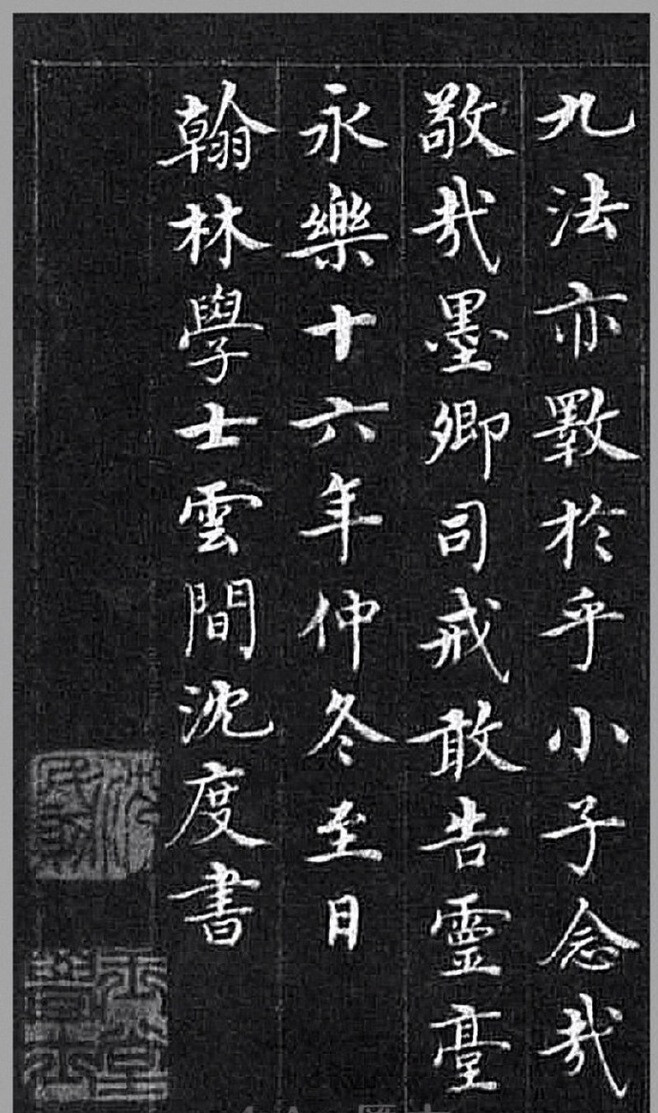 九法亦斁於乎小子念哉
敬哉墨卿司戒敢告靈臺
永樂十六年仲冬至日
翰林學士雲間沈度書